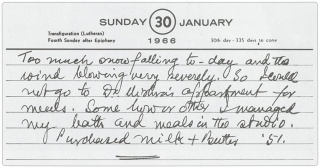 SUNDAY 30 JANUARY
Transfiguration (Lutheran)
Fourth Sunday after Epiphany
1966
30th day - 335 days to come
Too much snow falling to-day and the
wind blowing very severely. So I could
not go to Dr. apartment for
meals. Some how or other I managed
my bath and meals in the studio.
Purchased milk + Butter .51.